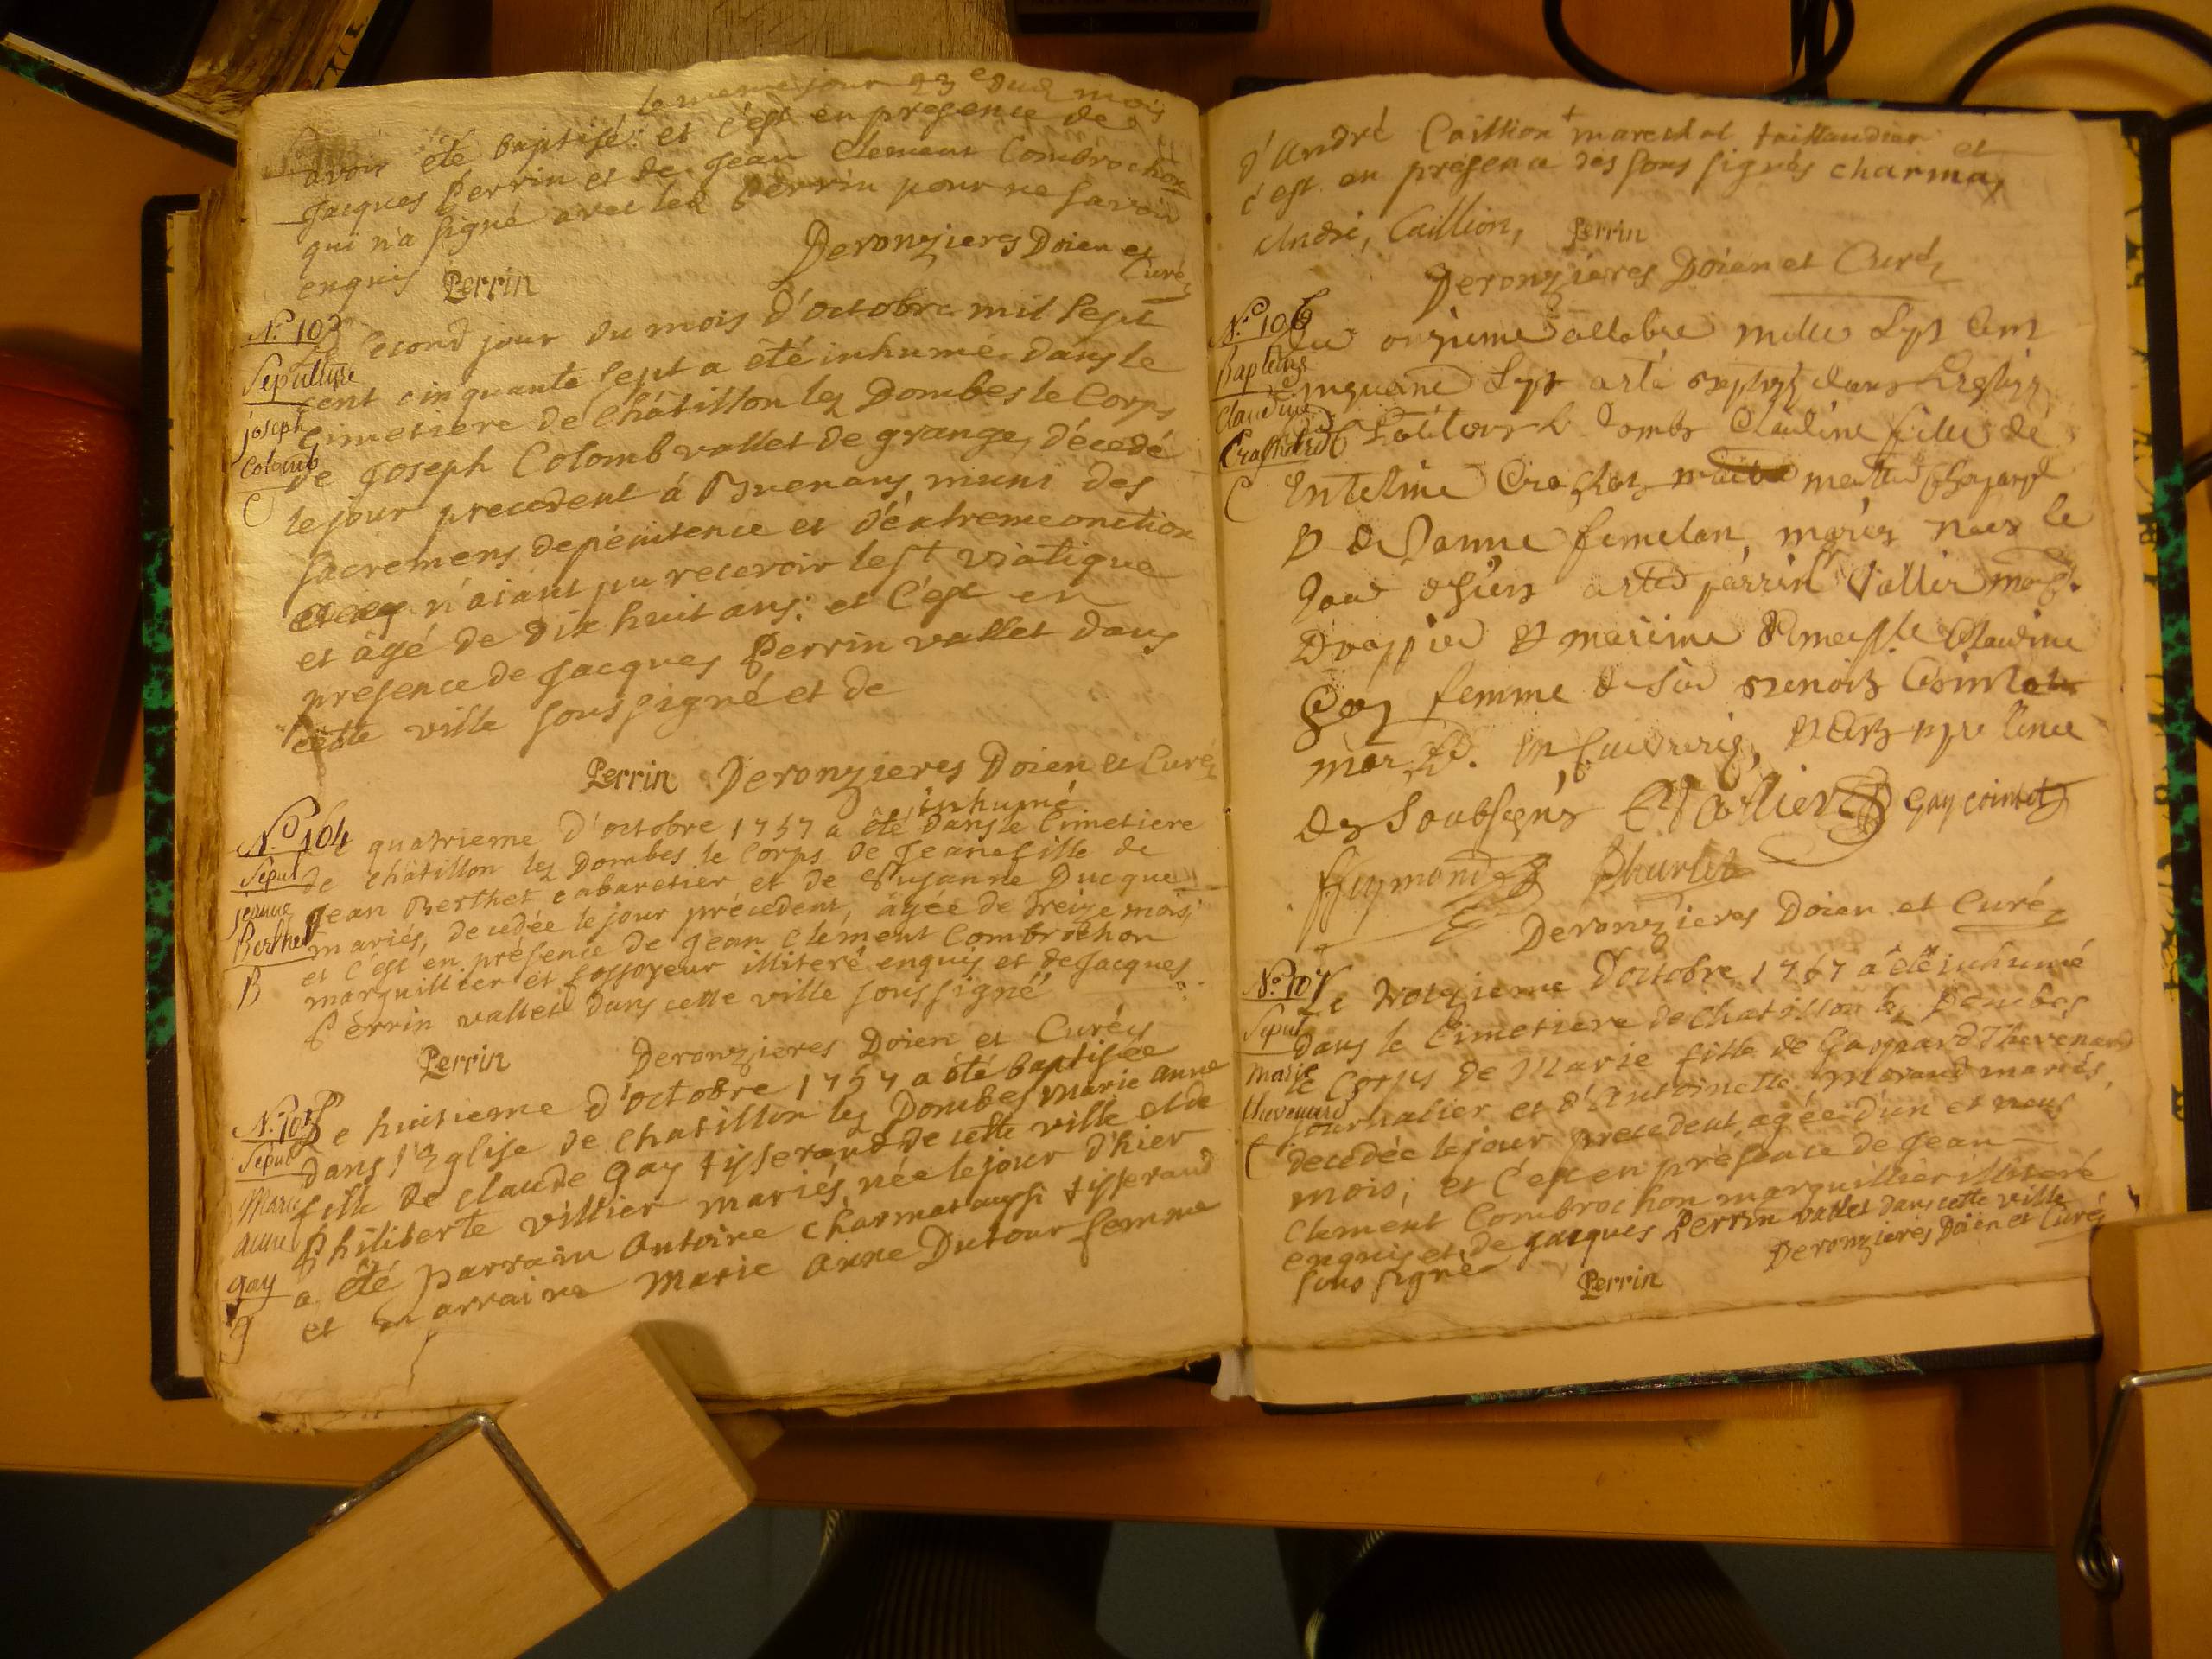 le meme jour 23e dud mois
avoir été baptisé: et c'est en presence de
Jacques Perrin et de Jean Clement Combrochon
qui n'a signé avec led Perrin pour ne savoir
enquis Perrin Deronzieres Doien et
Curé
N.o 103
Sepulture
joseph
Colomb
C
Le second jour du mois d'octobre mil sept
cent cinquante sept a été inhumé dans le
Cimetiere de Châtillon lez Dombes le Corps
de Joseph Colomb vallet de grange, décedé
le jour precedent á Buenans, muni des
sacremens de pénitence et d'éxtreme onction
n'aiant pu recevoir le st viatique
et âgé de dix huit ans; et c'est en
presence de Jacques Perrin vallet dans
cette ville soussigné et de
Perrin Deronzieres Doien et Curé
N.o 104
Sepul
jeanne
Berthet
B
quatrieme d'octobre 1757 a été inhumé dans le Cimetiere
de châtillon lez Dombes le Corps de Jeane fille de
Jean Berthet cabaretier et de Susanne Ducque
mariés, decedée le jour précedent, âgée de treize mois;
et c'est en présence de Jean Clement Combrochon
marguillier et fossoyeur illiteré enquis et de Jacques
Perrin vallet dans cette ville soussigné
Perrin Deronzieres Doien et Curé
N.o 105
Sepul
Marie
anne
gay
g
Le huitieme d'octobre 1757 a été baptisée
dans l'Eglise de Chatillon lez Dombes Marie anne
fille de Claude Gay tisserand de cette ville et de
Philiberte Villier mariés, née le jour d'hier
a été parrain Antoine Charmat aussi tisserand
et marraine Marie Anne Dutour femme
d'André Caillion + marechal taillandier et
c'est en présence des sous signés charma,
André, Caillion, Perrin
Deronzieres Doien et Curé
N.o 106
Baptême
Claudine
C
Du onzieme octobre mille sept cent
cinquante sept a été dans
Claudine fille de
femelan, mariés née le
parrin Vallier
Claudine
Gay femme
presence
Des Soubsignés Vallier Gay cointet
Reymond
Deronzieres Doien et Curé
N.o 107
Sepul
marie
thevenard
C
Le treizieme D'octobre 1757 a été inhumé
dans le Cimetiere de chatillon lez Dombes
le Corps de Marie fille de Gaspard Thevenard
journalier et d'Antoinette Morand mariés,
decedée le jour precedent, agée d'un et neuf
mois; et c'est en présence de Jean
Clement Combrochon marguillier illiteré
enquis et de Jacques Perrin vallet dans cette ville
sous signé Perrin Deronzieres Doien et Curé